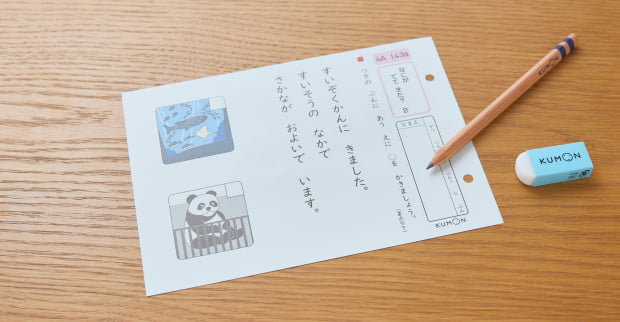 4A 143a
なにが
でて きた？ 2
なまえ
KUMON
つぎの ぶんに あう えに ○を かきましょう。
すいぞくかんに きました。
すいそうの なかで
さかなが およいで います。
KUMON
KUMON